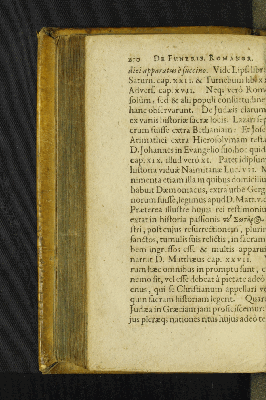 210 DE FUNERIB. ROMANOR.
dini apparatus è succino. Vide Lips. lib.
Saturn. cap. XXII. & Turnebum lib. X
Advers. cap. XVII. Neq; verò Roma
solùm, sed & alii populi consuetudine
hanc observarunt. De Judæis clarum
ex variis historiæ sacræ locis. Lazari sep
crum fuisse extra Bethaniam: Et Josep
Arimathei extra Hierosolymam testa
D. Johannes in Evangelio suo: hoc quid
cap. XIX, illud verò XI. Patet id ipsum
historia viduæ Naimitanæ Luc. VII. M
numenta etiam illa in quibus domicilium
habuit Dæmoniacus, extra urbē Gerg
norum fuisse, legimus apud D. Matt. v. c
Præterea illustre hujus rei testimonium
extat in historia passionis τῦ Σωτῆρ@
stri, post cujus resurrectionem, plurim
sanctos, tumulis suis relictis, in sacram
bem ingressos esse & multis apparuisse
narrat D. Matthæus cap. XXVII.
rum hæc omnibus in promptu sunt,
nemo sit, vel esse debeat à pietate adeò
enus, qui se Christianum appellari v
quin sacram historiam legent. Quare
Judæa in Græciam jam proficiscemur:
jus pleræq; nationes ritus hujus adeò te